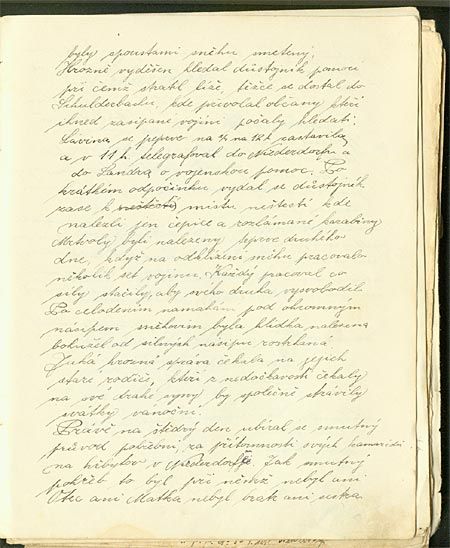 byly spoustami sněhu smeteny.
Hrozně vyděšen hledal důstojník pomoci
při čemž ztratil lyže, těžce se dostal do
Schulderbachu, kde přivolal občany kteří
ihned zasípané vojíny počaly hledati.
Lavina se teprve na ¾ na 12 h zastavila
a v 11 h. telegrafoval do Niederdorfu a
do Landra o vojenskou pomoc. Po
krátkém odpočinku vydal se důstojník
zase k neštěstí místu neštestí kde
nalezli jen čepice a rozlámané karabiny
Mrtvoly byli nalezeny teprve druhého
dne, když na odklizení sněhu pracovalo
několik set vojínu. Každý pracoval co
síly stačily, aby svého druha vysvobodil.
Po celodením namáhám pod ohromným
násipem sněhovím byla hlídka nalezena
bohužel od silných násipu roztrhaná.
Jaká hrozná zpráva čekala na jejich
staré rodiče, kteří z nedočkavostí čekaly
na své drahé syny by společně strávily
svatky vanoční.
Právě na štědrý den ubíral se smutný
průvod pohřební, za přítomnosti svých kamarádů
na hřbytov v Niederdorfě. Jak smutný
pohřeb to byl při němž nebyl ani
Otec ani Matka nebyl bratr ani sestra